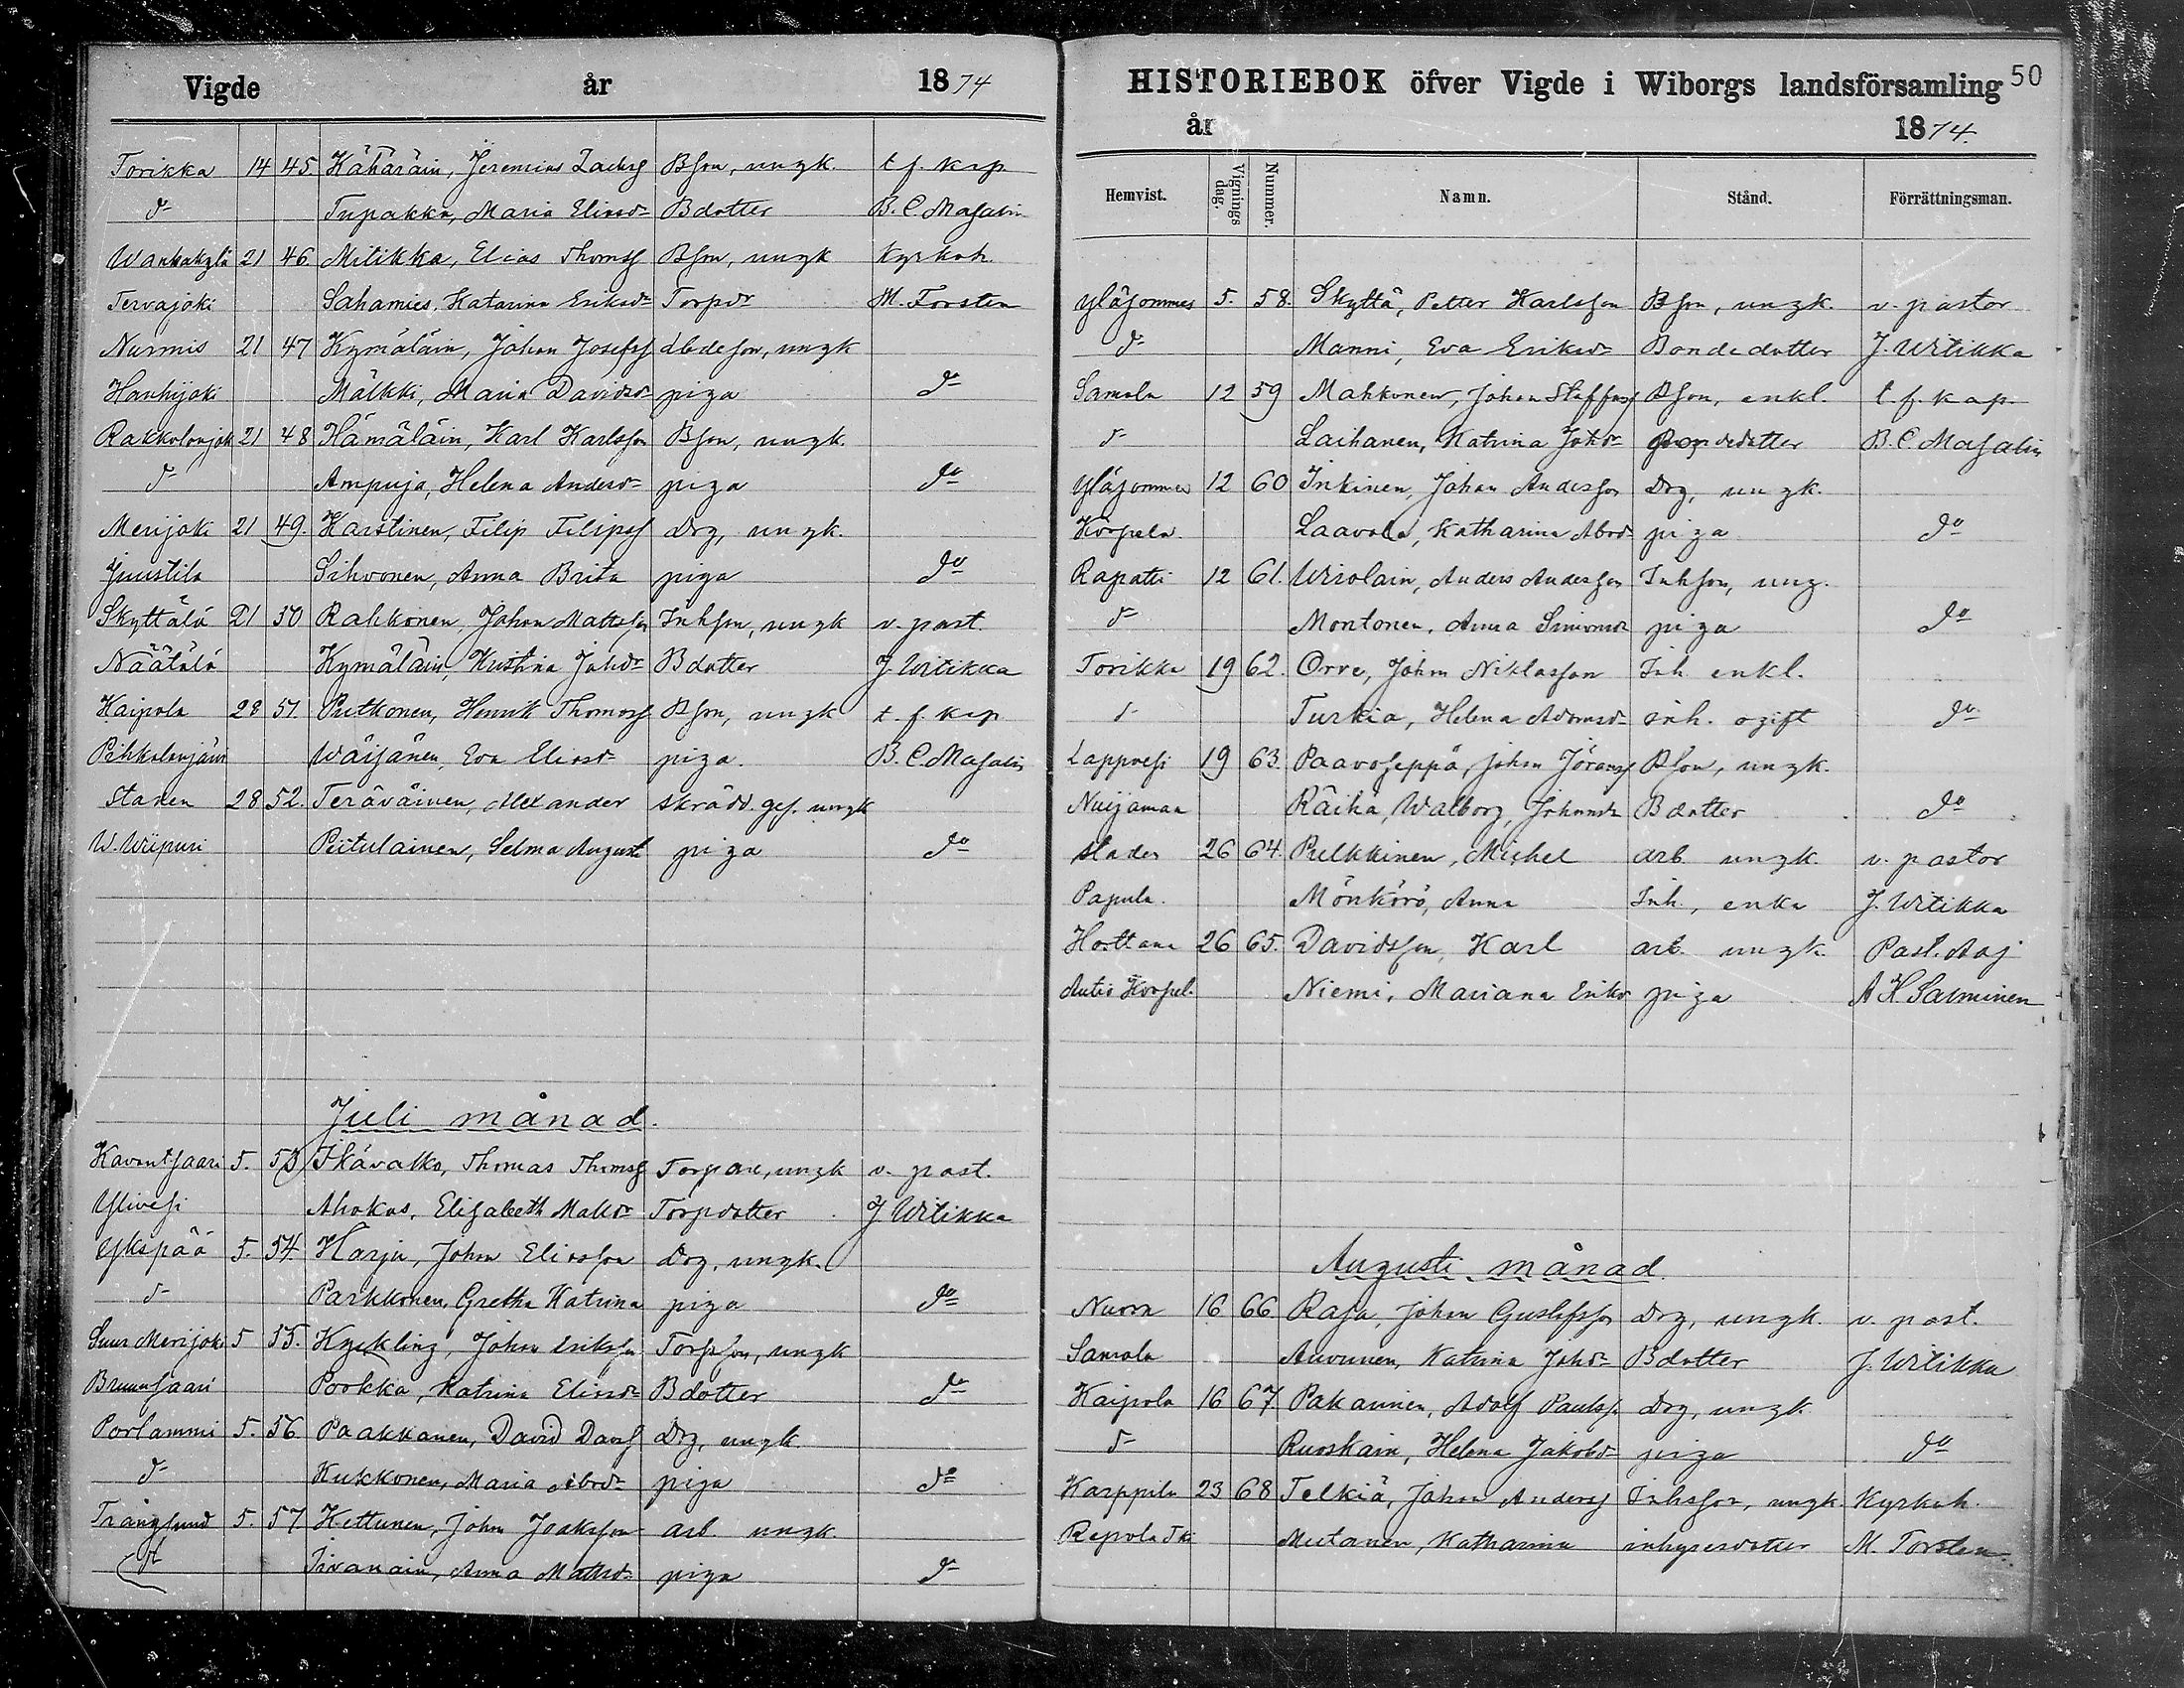 Vigde år 1874
Torikka 14 45. Kähäräin, Jeremias Zachs Bson, ungk. t.f. kap
do Tupakka, Maria Eliasdr Bdotter B. C. Masalin
Wanhakylä 21 46. Mitikka, Elias Thomss Bson, ungk Kyrkoh.
Tervajoki Sahamies, Katarina Eriksdr Torpdr M. Forsten
Nurmis 21 47 Kymäläin, Johan Josefss ungk
Hanhijoki Mälkki, Maria Davidsdr piga do
Rakkolanjok 21 48 Hämäläin, Karl Karlsson Bson, ungk.
do Ampuja, Helena Andersdr piga do
Merijoki 21 49. Karstinen, Filip Filipss Drg, ungk.
Juustila Sihvonen, Anna Brita piga do
Skyttälä 21 50 Rahkonen, Johan Mattsson Inhson, ungk v. past.
Näätälä Kymäläin, Kristina Johdr Bdotter J. Witikka
Kaipola 28 51. Putkonen, Henrik Thomass Bson, ungk t. f. kap
Pihkalanjärvi Wäisänen, Eva Eliasdr piga. B. C. Masalin
Staden 28 52. Teräväinen, Alexander skrädd. ges. ungk
W. Wiipuri Peitulainen, Selma Augusta piga do
Juli månad.
Kavantsaari 5. 53 Ikävalko, Thomas Thomss Torpare, ungk v. past.
Ylivesi Ahokas, Elisabeth Matsdr Torpdotter J Witikka
Ykspää 5. 54 Harju, Johan Eliasson Drg, ungk.
do Parkkonen, Gretha Katrina piga do
Suur Merijoki 5 55. Kyckling, Johan Eriksson Torpson, ungk
Bruunsaari Pookka, Katrina Eliasdr Bdotter do
Porlammi 5. 56 Paakkanen, David Davss Drg, ungk.
do Kukkonen, Maria Abrdr piga do
Trångsund 5. 57 Kettunen, Johan Joaksson arb. ungk.
do Tivanain, Anna Mattsdr piga do
HISTORIEBOK öfver Vigde i Wiborgs landsförsamling 50
år 1874.
Hemvist. Vignings dag. Nummer. Namn. Stånd. Förrättningsman.
Yläsommes 5. 58. Skyttä, Petter Karlsson Bson, ungk. v. pastor
do Manni, Eva Eriksdr Bondedotter J. Witikka
Samola 12 59 Mahkonen, Johan Staffanss Bson, enkl. t. f. kap.
do Laihanen, Katrina Johdr B. C. Masalin
Yläsommes 12 60 Inkinen, Johan Andersson Drg, ungk.
Korpela. Laavola, Katharina Abrdr piga do
Rapatti 12 61. Wirolain, Anders Andersson Inhson, ung.
do Montonen, Anna Simonsdr piga do
Torikka 19 62. Orve, Johan Niklasson Inh. enkl.
do Turkia, Helena Adamsdr inh. ogift do
Lappvesi 19 63. Paavoseppä, Johan Jöranss Bson, ungk.
Nuijamaa Räihä, Walborg, Johansdr Bdotter do
staden 26 64. Pulkkinen, Michel arb. ungk. v. pastor
Papula. Mönkörö, Anna Inh., enka J. Witikka
Hosttana 26 65. Davidsson, Karl arb. ungk. Past. Adj
Autio Korpel. Niemi, Mariana Eriksdr piga A H. Salminen
Augusti månad.
Nuora 16 66 Rasa, Johan Gustafsson Drg, ungk. v. past.
Samola Auvunen, Katrina Johdr Bdotter J. Witikka
Kaipola 16 67 Pakarinen, Adolf Paulss. Drg, ungk.
do Ruoskain, Helena Jakobsdr piga do
Karppila 23 68 Telkiä, Johan Anderss Inhsson, ungk. Kyrkoh.
Repola Tk Mutanen, Katharina inhysesdotter M. Forsten.